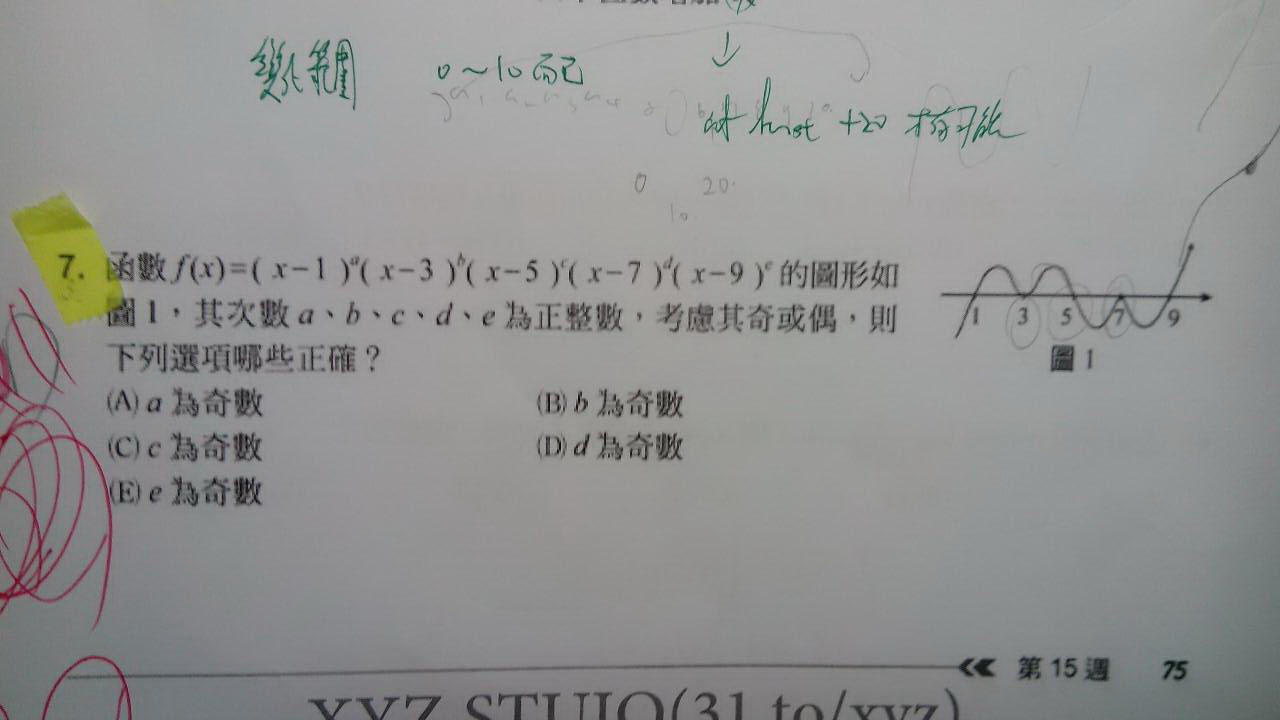 變化範圍 0~10 而已
at least +20 才有可能
0 20.
10.
7. 函數 f(x)=( x−1 )ᵃ( x−3 )ᵇ( x−5 )ᶜ( x−7 )ᵈ( x−9 )ᵉ 的圖形如
圖 1，其次數 a、b、c、d、e 為正整數，考慮其奇或偶，則
下列選項哪些正確？
1 3 5 7 9
圖 1
(A) a 為奇數 (B) b 為奇數
(C) c 為奇數 (D) d 為奇數
(E) e 為奇數
第 15 週 75
XYZ STUIO(31.to/xyz)